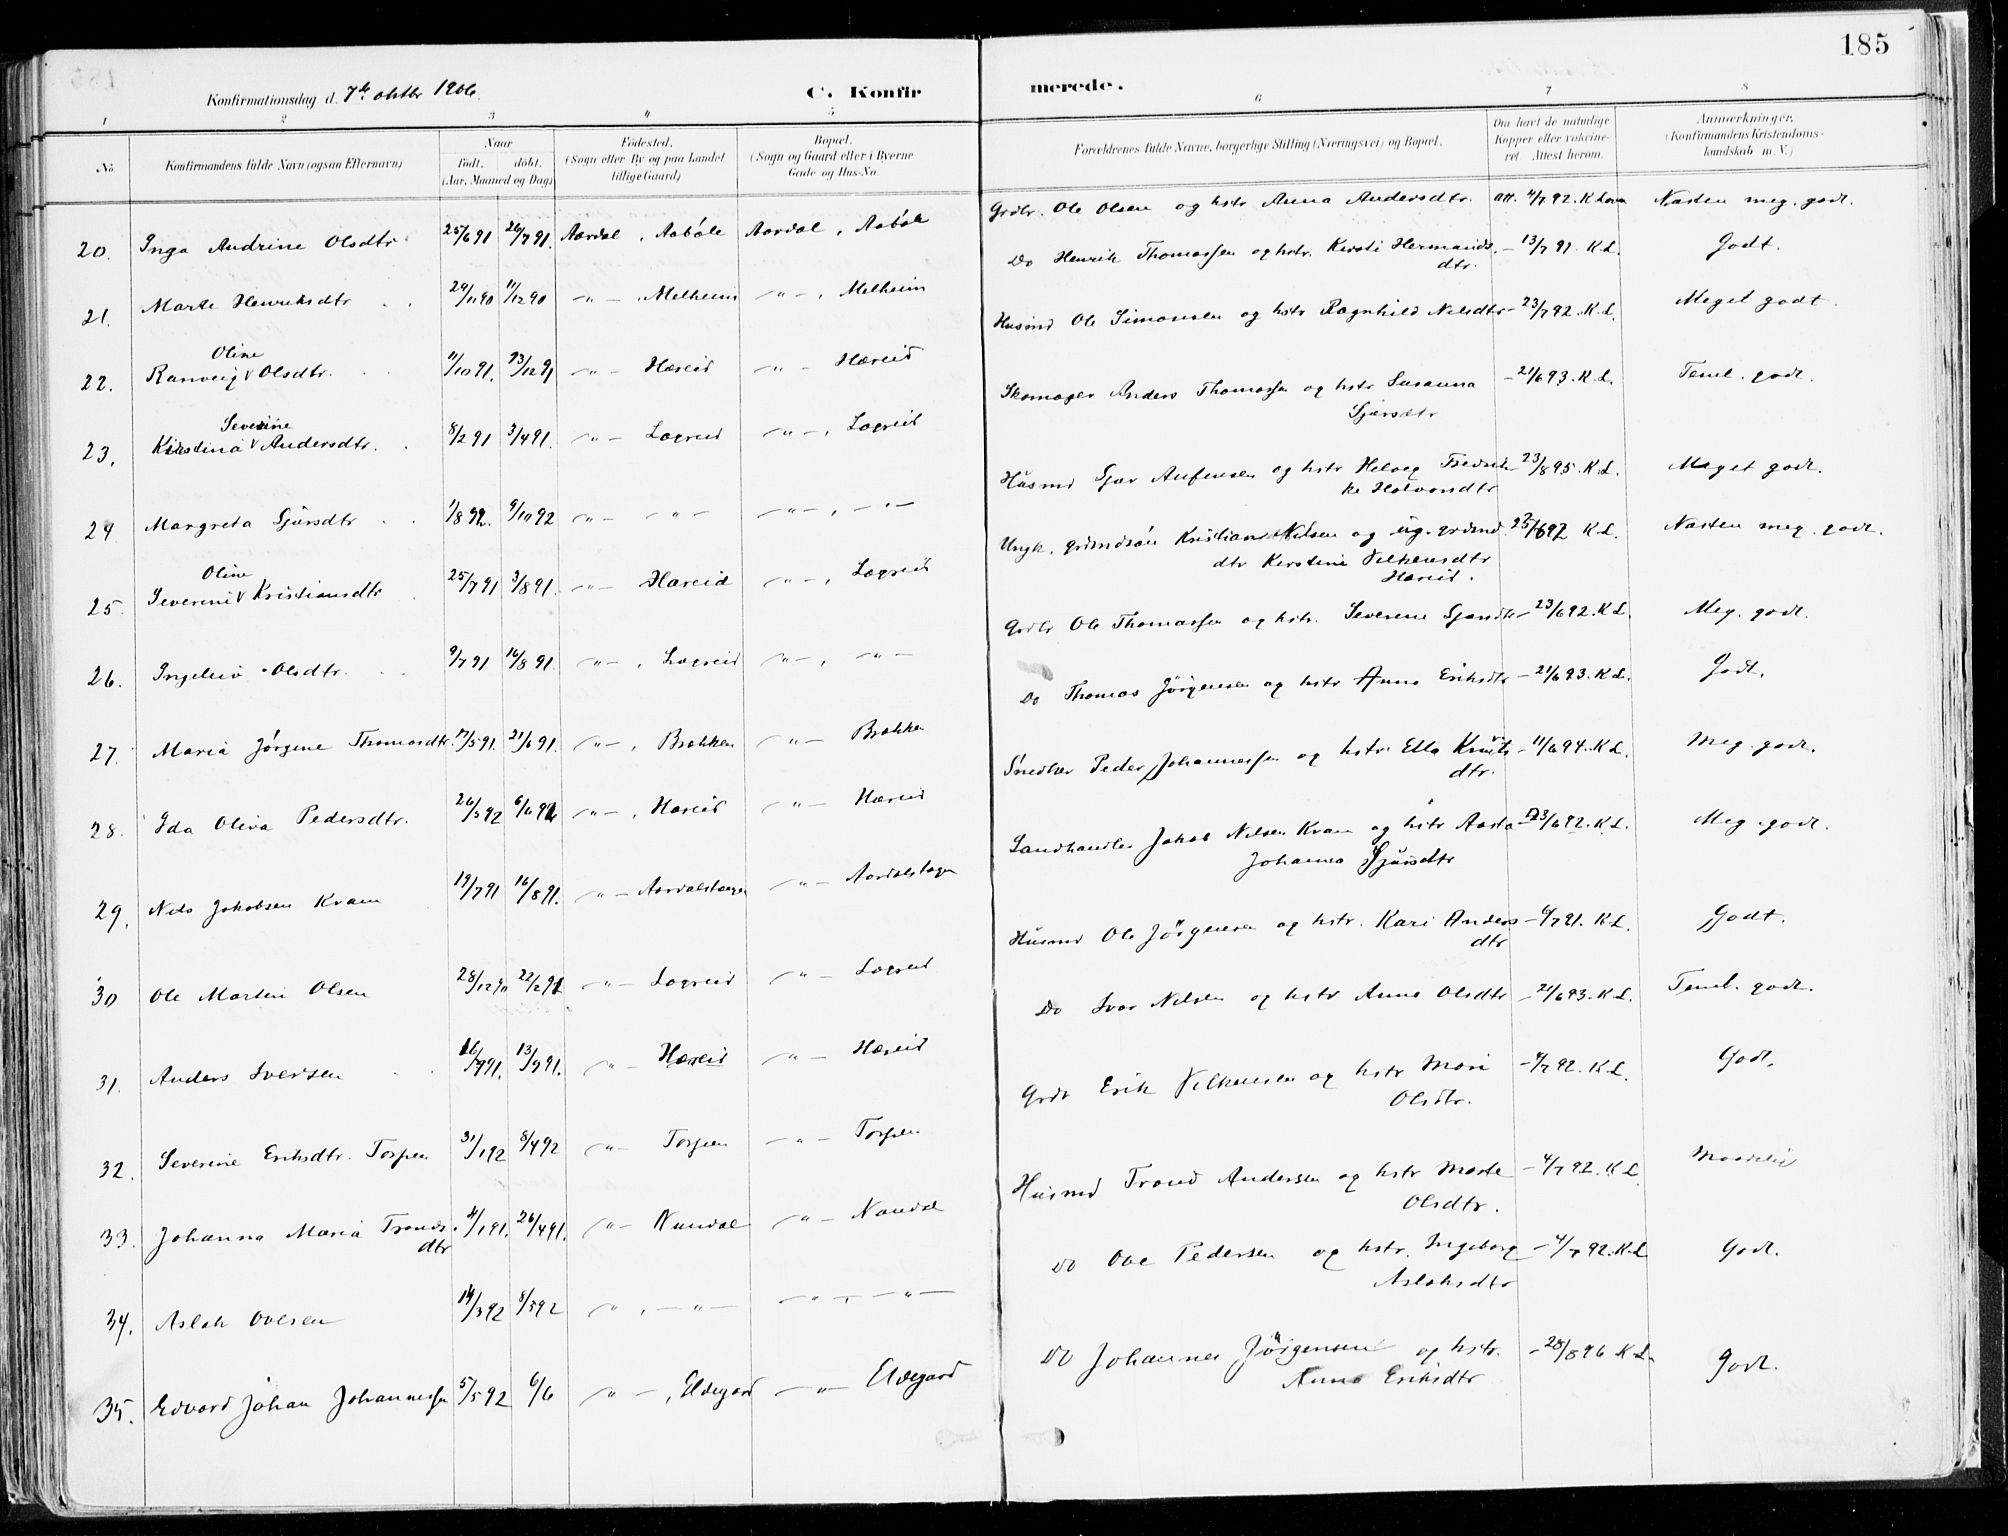 185
Konfirmationsdag d. 7de oktbr 1906.
C. Konfirmerede.
1 2 3 4 5 6 7 8
No.
Konfirmandens fulde Navn (ogsaa Efternavn)
Naar født. døbt. (Aar, Maaned og Dag)
Fødested. (Sogn eller By og paa Landet tillige Gaard)
Bopæl. (Sogn og Gaard eller i Byerne Gade og Hus-No.
Forældrenes fulde Navne, borgerlige Stilling (Næringsvei) og Bopæl.
Om havt de naturlige Kopper eller vakcineret. Attest herom.
Anmærkninger. (Konfirmandens Kristendomskundskab m. V.)
20. Inga Andrine Olsdtr 25/6 91 26/7 91. Aardal, Aabøle Aardal, Aabøle Grdbr. Ole Olsen og hstr Anna Andersdtr. att. 4/7 92. K. Næsten meg. godt.
21. Marte Henriksdtr 29/11 90 11/12 90 -"-, Melheim -"-, Melheim Do Henrik Thomassen og hstr. Kersti Hermandsdtr. - 13/7 91. K.L. Godt.
22. Ranveig Oline Olsdtr. 11/10 91. 13/12 91 -"- Hæreid -"- Hæreid Husmd Ole Simonsen og hstr Ragnhild Nilsdtr - 23/7 92. K.L. Meget godt.
23. Kristina Severine Andersdtr. 8/2 91 3/4 91. -"- Lægreid -"-, Lægreid Skomager Anders Thomassen og hstr Susanna Sjursdtr - 21/6 93. K.L. Teml. godt.
24 Margreta Sjursdtr 1/8 92. 9/10 92 -"- -"- -"-, -"- Husmd Sjur Anfensen og hstr Helveg Fredrikke Halvorsdtr - 23/8 95. K.L. Meget godt.
25. Severine Oline Kristiansdtr 25/7 91 3/8 91. -"- Hæreid -"-, Lægreid Ungk. grdmdsøn Kristian Nilsen og ug. grdmd dtr Kerstine Vilhemsdtr Hæreid. 25/6 92 K.L. Næsten meg. godt.
26. Ingeleiv Olsdtr. 9/7 91 16/8 91. -"-, Lægreid -"-, -"- Grdbr Ole Thomassen og hstr. Severine Sjursdtr - 23/6 92. K.L. Meg. godt.
27. Maria Jørgine Thomasdtr. 17/5 91. 21/6 91. -"-, Brækken -"- Brækken Do Thomas Jörgensen og hstr Anna Eriksdtr - 21/6 93. K.L. Godt.
28. Ida Oliva Pedersdtr. 26/3 92 6/6 92 -"-, Hæreid -"- Hæreid Snedker Peder Johannessen og hstr Ella Knutsdtr. - 11/6 94. K.L. Meg. godt.
29. Nils Jakobsen Kvam 19/7 91 16/8 91. -"- Aardalstangen -"- Aardalstangen Landhandler Jakob Nilsen Kvam og hstr Aasta Johanna Sjursdtr 23/6 92. K.L. Meg. godt.
30 Ole Martin Olsen 28/12 90 22/2 91 -"- Lægreid -"- Lægreid Husmd Ole Jörgensen og hstr. Kari Andersdtr - 6/7 91. K.L. Godt.
31. Anders Iversen 16/7 91. 13/9 91. -"- Hæreid -"- Hæreid Do Ivar Nilsen og hstr Anna Olsdtr - 21/6 93. K.L. Teml. godt.
32. Severine Eriksdtr. Torpen 31/1 92 8/4 92 -"- Torpen -"- Torpen Grdbr Erik Vilhemsen og hstr Mari Olsdtr. - 4/7 92. K.L. Godt.
33. Johanna Maria Trondsdtr 4/1 91. 26/4 91. -"- Nundal -"- Nundal Husmd Trond Andersen og hstr Marte Olsdtr. - 4/7 92. K.L. Maadelig
34. Aslak Ovesen 14/3 92 8/5 92 -"-, -"- -"-, -"- Do Ove Pedersen og hstr. Ingeborg Aslaksdtr - 4/7 92. K.L Godt.
35. Edvard Johan Johannessen 5/5 92 6/6 -"-, Eldegard -"- Eldegard Do Johannes Jörgensen og hstr. Anna Eriksdtr - 28/8 96 K.L. Godt.